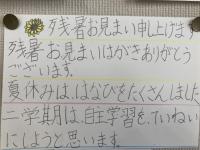 残暑お見まい申し上げます
残暑お見まいはがきありがとう
ございます。
夏休みは、はなびをたくさんしました
二学期は、自主学習を、ていねい
にしようと思います。